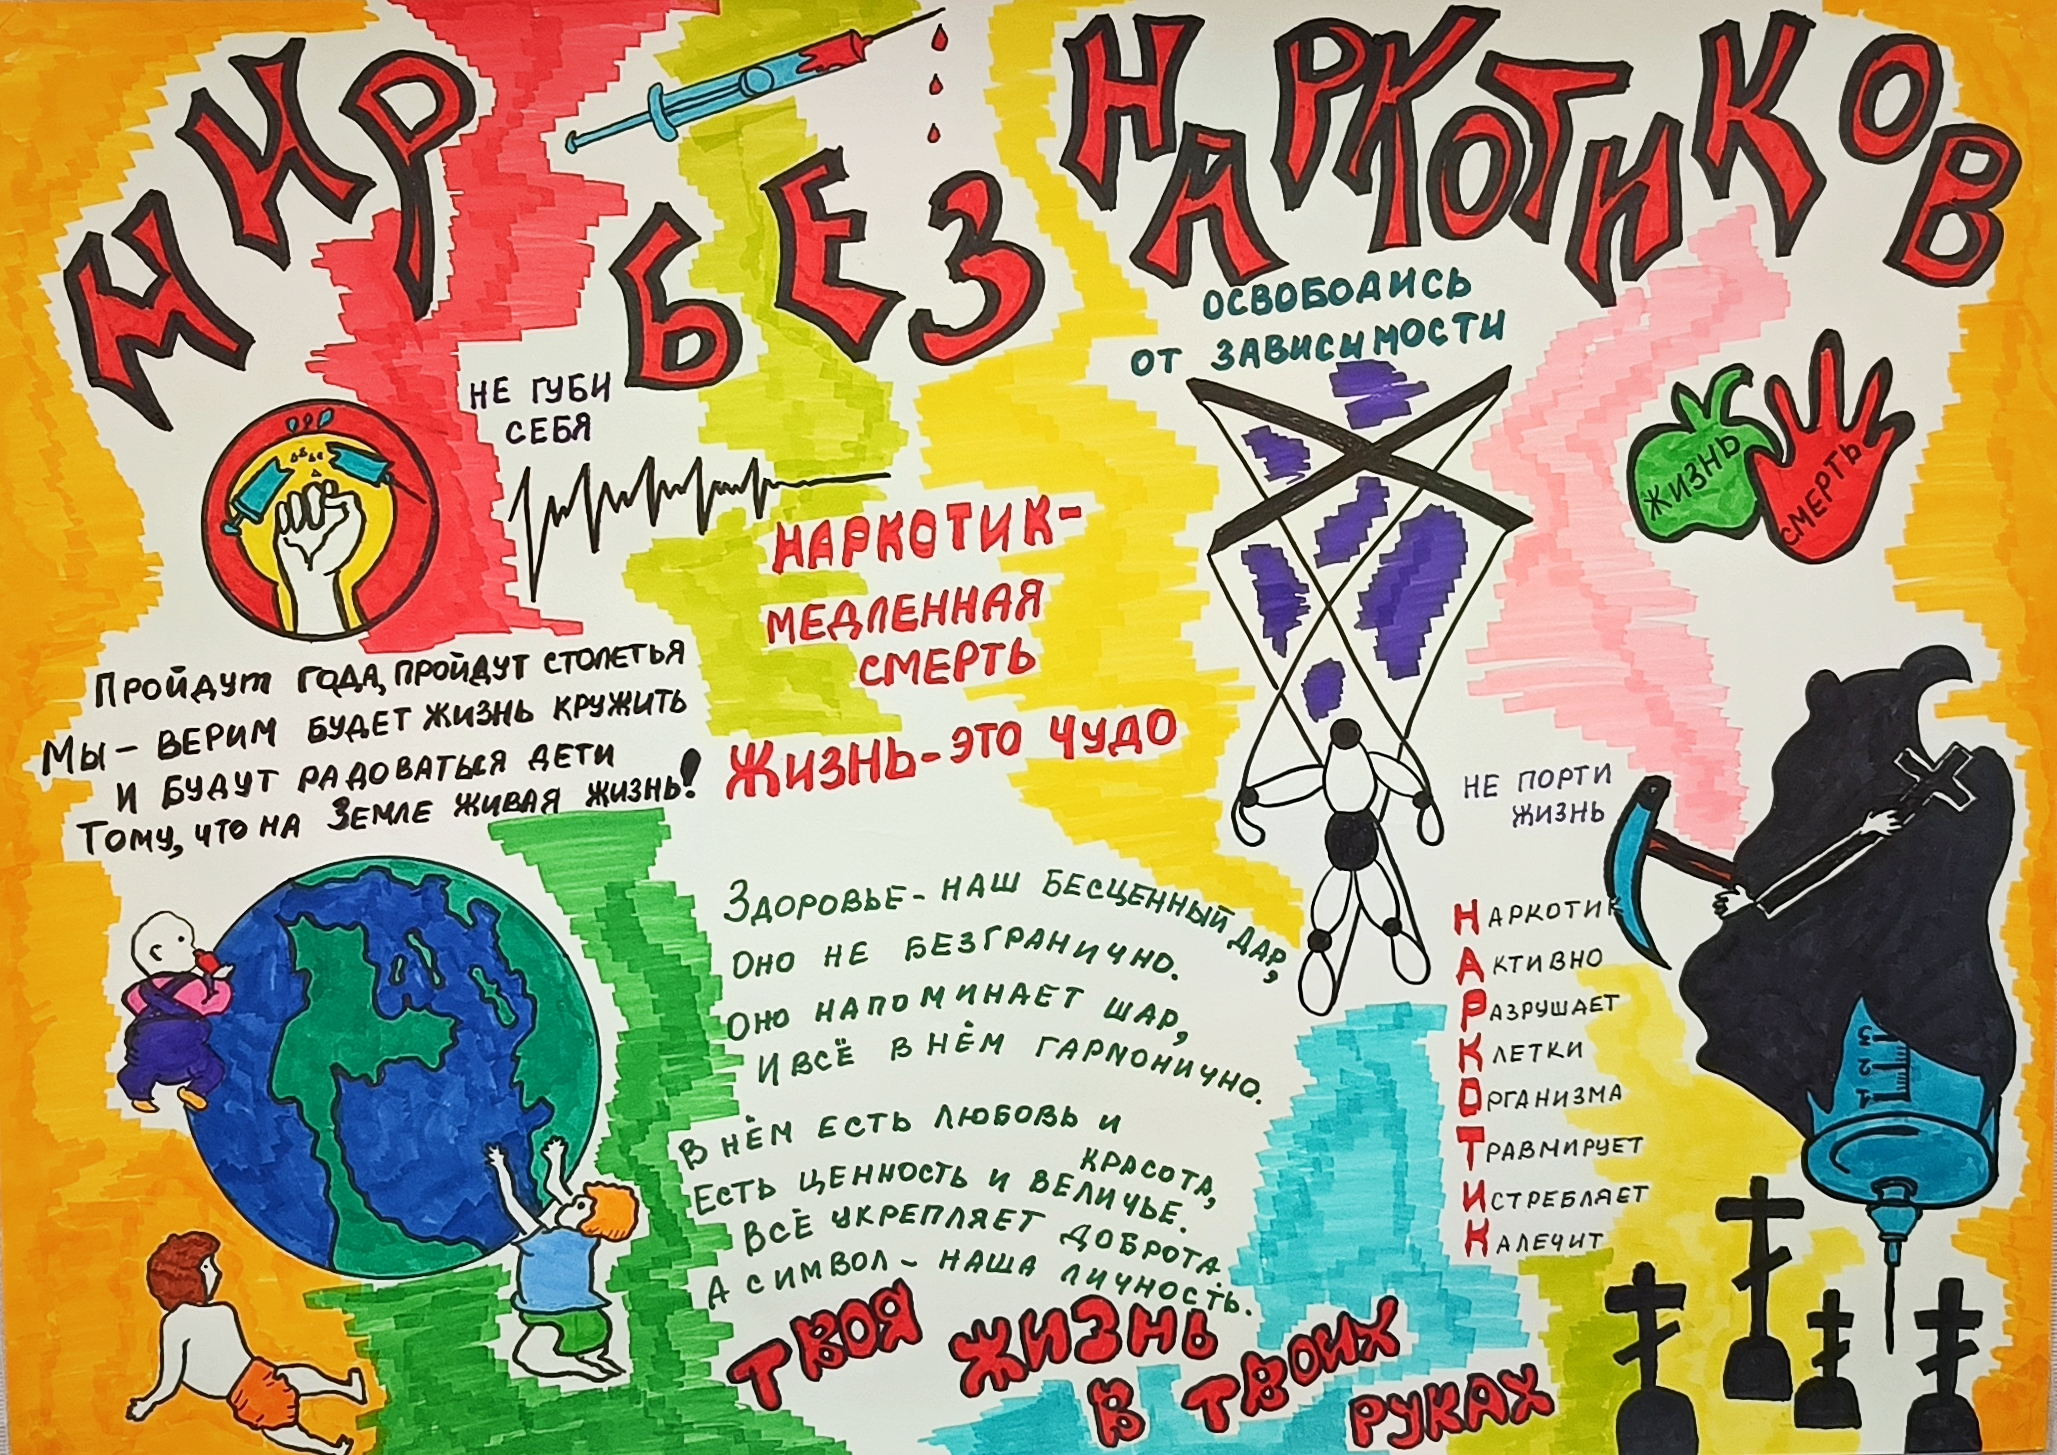 МИР БЕЗ НАРКОТИКОВ
НЕ ГУБИ
СЕБЯ
ОСВОБОДИСЬ
ОТ ЗАВИСИМОСТИ
ЖИЗНЬ
СМЕРТЬ
НАРКОТИК-
МЕДЛЕННАЯ
СМЕРТЬ
ЖИЗНЬ-ЭТО ЧУДО
ПРОЙДУТ ГОДА, ПРОЙДУТ СТОЛЕТЬЯ
МЫ - ВЕРИМ БУДЕТ ЖИЗНЬ КРУЖИТЬ
И БУДУТ РАДОВАТЬСЯ ДЕТИ
ТОМУ, ЧТО НА ЗЕМЛЕ ЖИВАЯ ЖИЗНЬ!
ЗДОРОВЬЕ - НАШ БЕСЦЕННЫЙ ДАР,
ОНО НЕ БЕЗГРАНИЧНО.
ОНО НАПОМИНАЕТ ШАР,
И ВСЁ В НЁМ ГАРМОНИЧНО.
В НЁМ ЕСТЬ ЛЮБОВЬ И
КРАСОТА,
ЕСТЬ ЦЕННОСТЬ И ВЕЛИЧЬЕ.
ВСЁ УКРЕПЛЯЕТ ДОБРОТА.
А СИМВОЛ - НАША ЛИЧНОСТЬ.
НЕ ПОРТИ
ЖИЗНЬ
НАРКОТИК
АКТИВНО
РАЗРУШАЕТ
КЛЕТКИ
ОРГАНИЗМА
ТРАВМИРУЕТ
ИСТРЕБЛЯЕТ
КАЛЕЧИТ
3
2
1
ТВОЯ ЖИЗНЬ
В ТВОИХ
РУКАХ